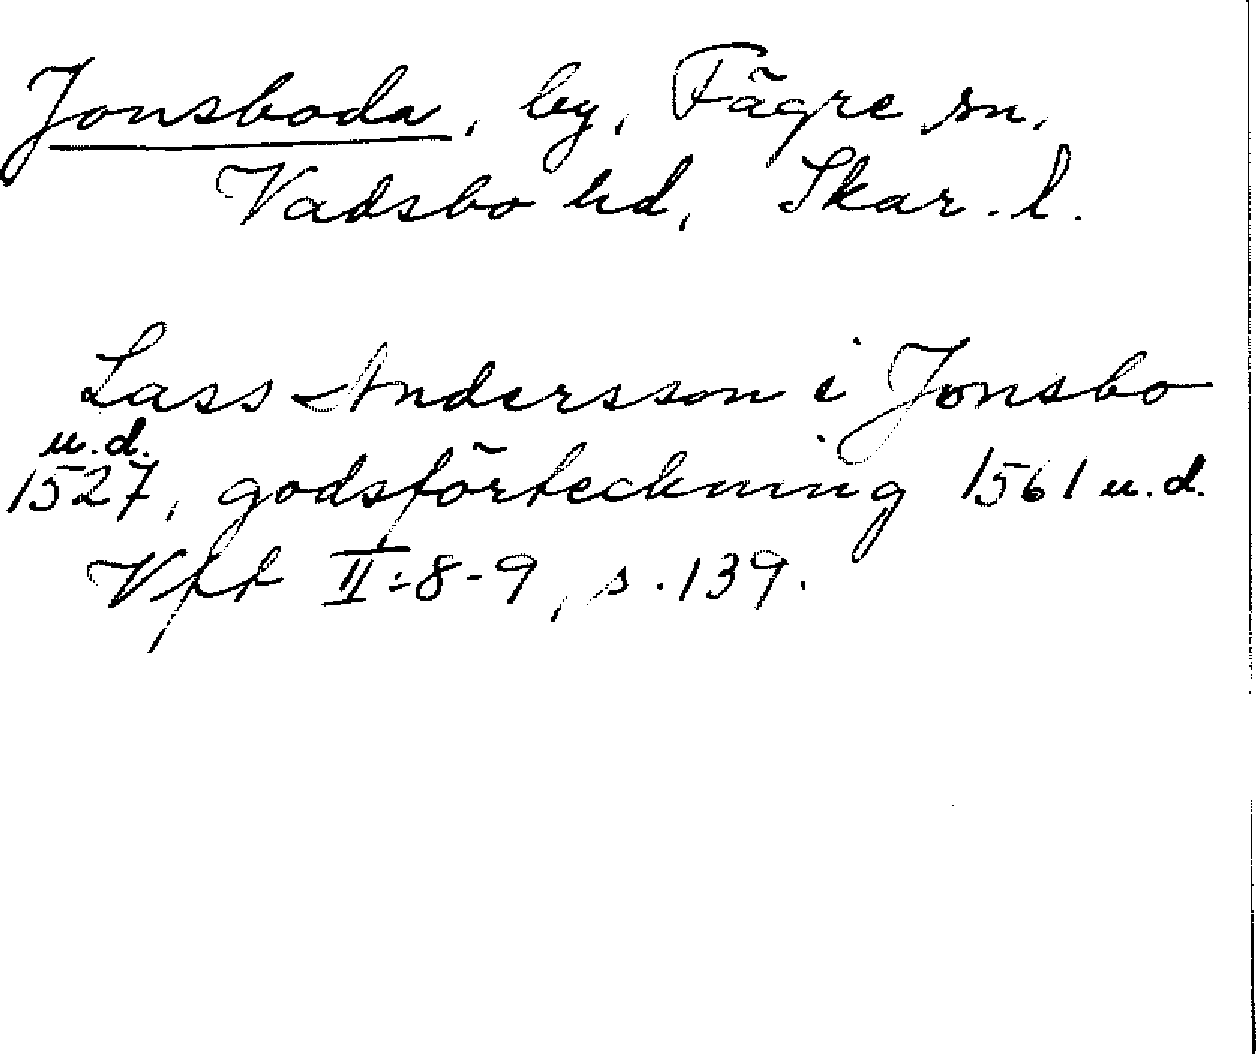 Jonsboda, by, Fägre sn,
Vadsbo hd, Skar. l.
Lass Andersson i Jonsbo
u.d.
1527, godsförteckning 1561 u.d.
Vfft II:8-9, s. 139.